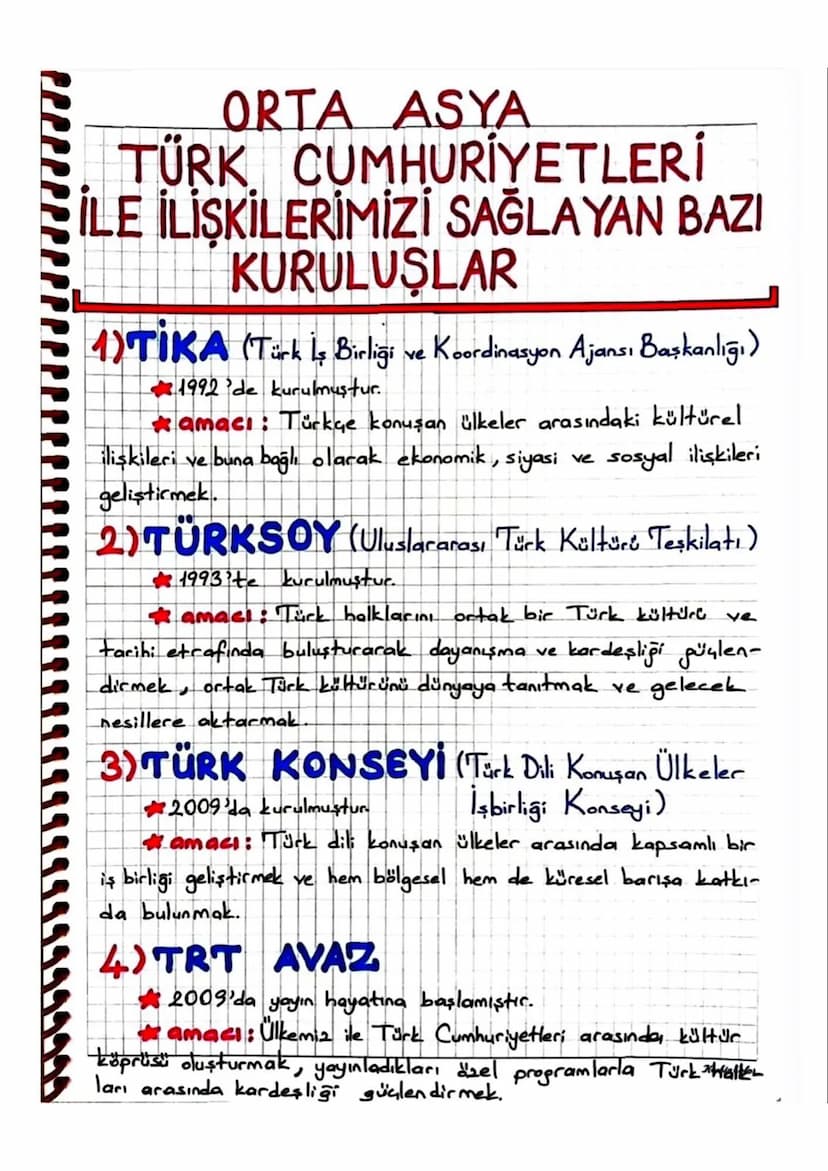 ORTA ASYA
TÜRK CUMHURİYETLERİ
İLE İLİŞKİLERİMİZİ SAĞLAYAN BAZI
KURULUŞLAR
1)TİKA (Türk İş Birliği ve Koordinasyon Ajansı Başkanlığı)
★1992'de kurulmuştur.
★amacı: Türkçe konuşan ülkeler arasındaki kültürel
ilişkileri ve buna bağlı olarak ekonomik, siyasi ve sosyal ilişkileri
geliştirmek.
2)TÜRKSOY (Uluslararası Türk Kültürü Teşkilatı)
★1993'te kurulmuştur.
★amacı: Türk halklarını ortak bir Türk kültürü ve
tarihi etrafında buluşturarak dayanışma ve kardeşliği güçlen-
dirmek, ortak Türk kültürünü dünyaya tanıtmak ve gelecek
nesillere aktarmak.
3)TÜRK KONSEYİ (Türk Dili Konuşan Ülkeler
İşbirliği Konseyi)
★2009'da kurulmuştur
★amacı: Türk dili konuşan ülkeler arasında kapsamlı bir
iş birliği geliştirmek ve hem bölgesel hem de küresel barışa katkı-
da bulunmak.
4)TRT AVAZ
★2009'da yayın hayatına başlamıştır.
★amacı: Ülkemiz ile Türk Cumhuriyetleri arasında kültür
köprüsü oluşturmak, yayınladıkları özel programlarla Türk halk-
ları arasında kardeşliği güçlendirmek.